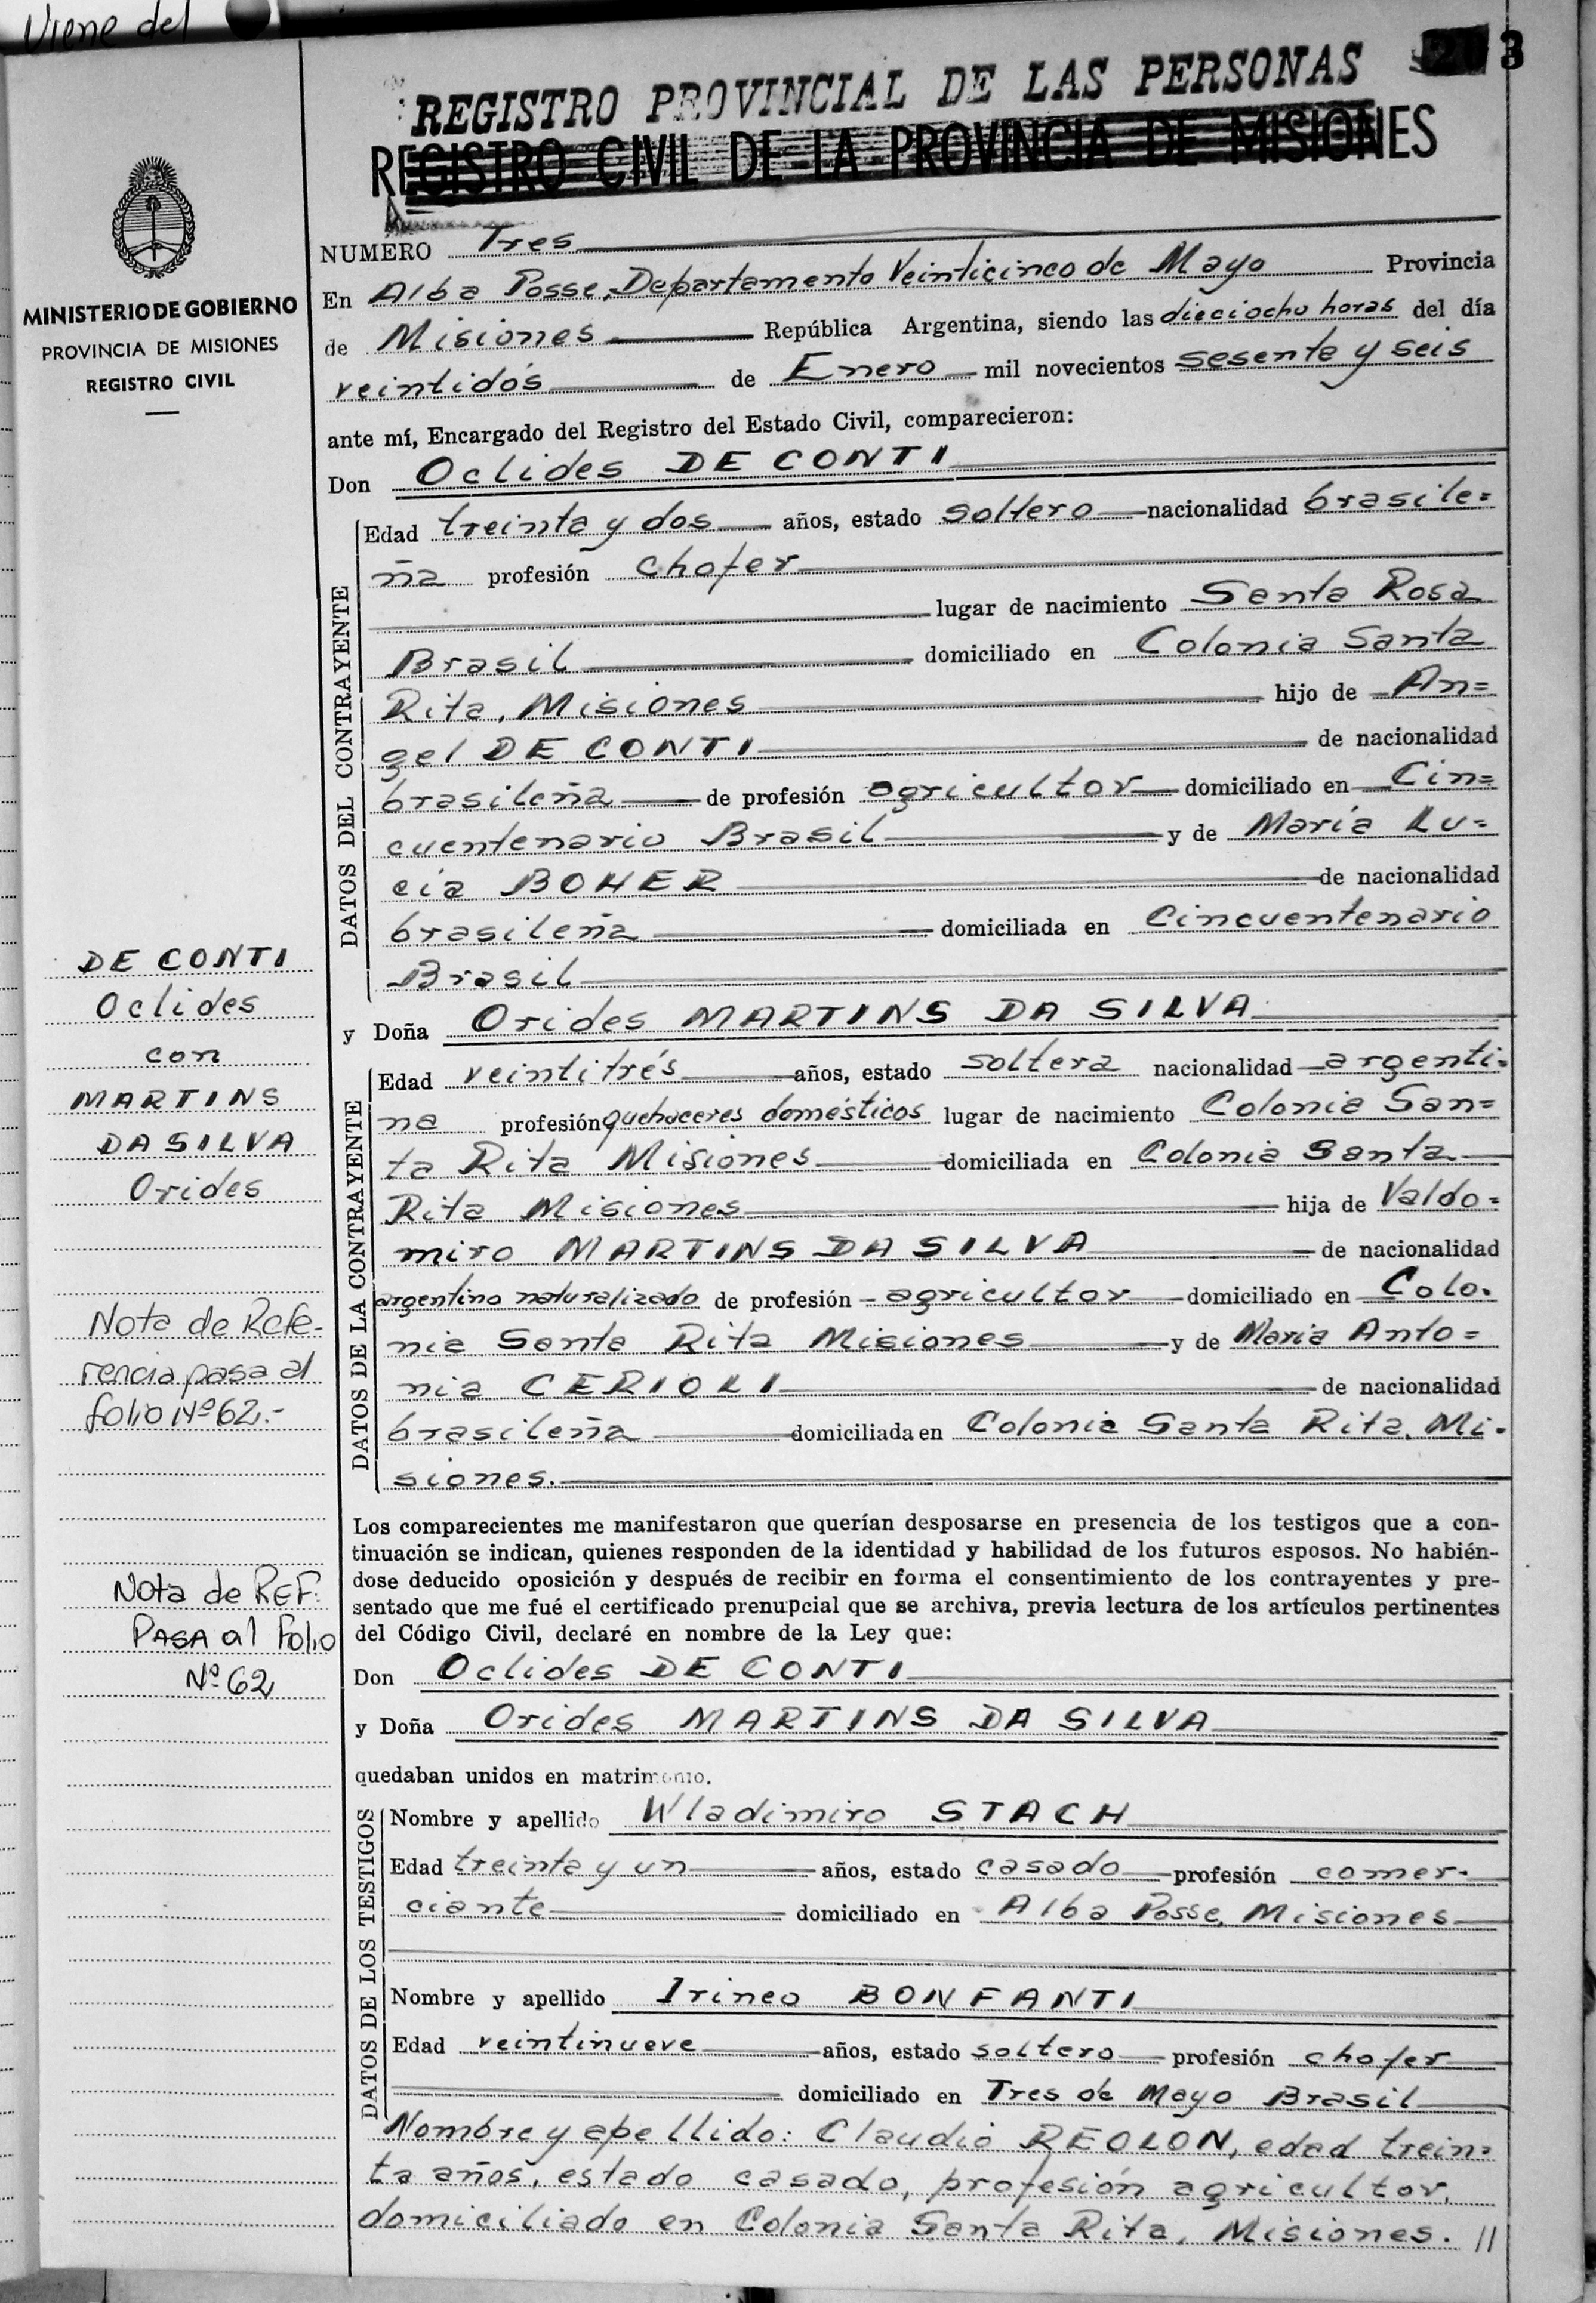 Viene del
3
REGISTRO PROVINCIAL DE LAS PERSONAS
REGISTRO CIVIL DE LA PROVINCIA DE MISIONES
MINISTERIO DE GOBIERNO
PROVINCIA DE MISIONES
REGISTRO CIVIL
NUMERO Tres
En Alba Posse, Departamento Veinticinco de Mayo Provincia
de Misiones República Argentina, siendo las dieciocho horas del día
veintidós de Enero mil novecientos sesenta y seis
ante mí, Encargado del Registro del Estado Civil, comparecieron:
Don Oclides DE CONTI
DATOS DEL CONTRAYENTE
Edad treinta y dos años, estado soltero nacionalidad brasile=
ña profesión chofer
lugar de nacimiento Santa Rosa
Brasil domiciliado en Colonia Santa
Rita, Misiones hijo de An=
gel DE CONTI de nacionalidad
brasileña de profesión agricultor domiciliado en Cin=
cuentenario Brasil y de María Lu=
cia BOHER de nacionalidad
brasileña domiciliada en Cincuentenario
Brasil
DE CONTI
Oclides
con
MARTINS
DA SILVA
Orides
y Doña Orides MARTINS DA SILVA
DATOS DE LA CONTRAYENTE
Edad veintitrés años, estado soltera nacionalidad argenti=
na profesión quehaceres domésticos lugar de nacimiento Colonia San=
ta Rita Misiones domiciliada en Colonia Santa
Rita Misiones hija de Valdo=
miro MARTINS DA SILVA de nacionalidad
argentino naturalizado de profesión agricultor domiciliado en Colo=
nia Santa Rita Misiones y de Maria Anto=
nia CERIOLI de nacionalidad
brasileña domiciliada en Colonia Santa Rita, Mi=
siones.
Nota de Refe-
rencia pasa al
folio Nº 62.-
Los comparecientes me manifestaron que querían desposarse en presencia de los testigos que a con-
tinuación se indican, quienes responden de la identidad y habilidad de los futuros esposos. No habién-
dose deducido oposición y después de recibir en forma el consentimiento de los contrayentes y pre-
sentado que me fué el certificado prenupcial que se archiva, previa lectura de los artículos pertinentes
del Código Civil, declaré en nombre de la Ley que:
Nota de REF:
PASA al Folio
Nº 62
Don Oclides DE CONTI
y Doña Orides MARTINS DA SILVA
quedaban unidos en matrimonio.
DATOS DE LOS TESTIGOS
Nombre y apellido Wladimiro STACH
Edad treinta y un años, estado casado profesión comer-
ciante domiciliado en Alba Posse, Misiones
Nombre y apellido Irineo BONFANTI
Edad veintinueve años, estado soltero profesión chofer
domiciliado en Tres de Mayo Brasil
Nombre y apellido: Claudio REOLON, edad trein=
ta años, estado casado, profesión agricultor,
domiciliado en Colonia Santa Rita, Misiones. //